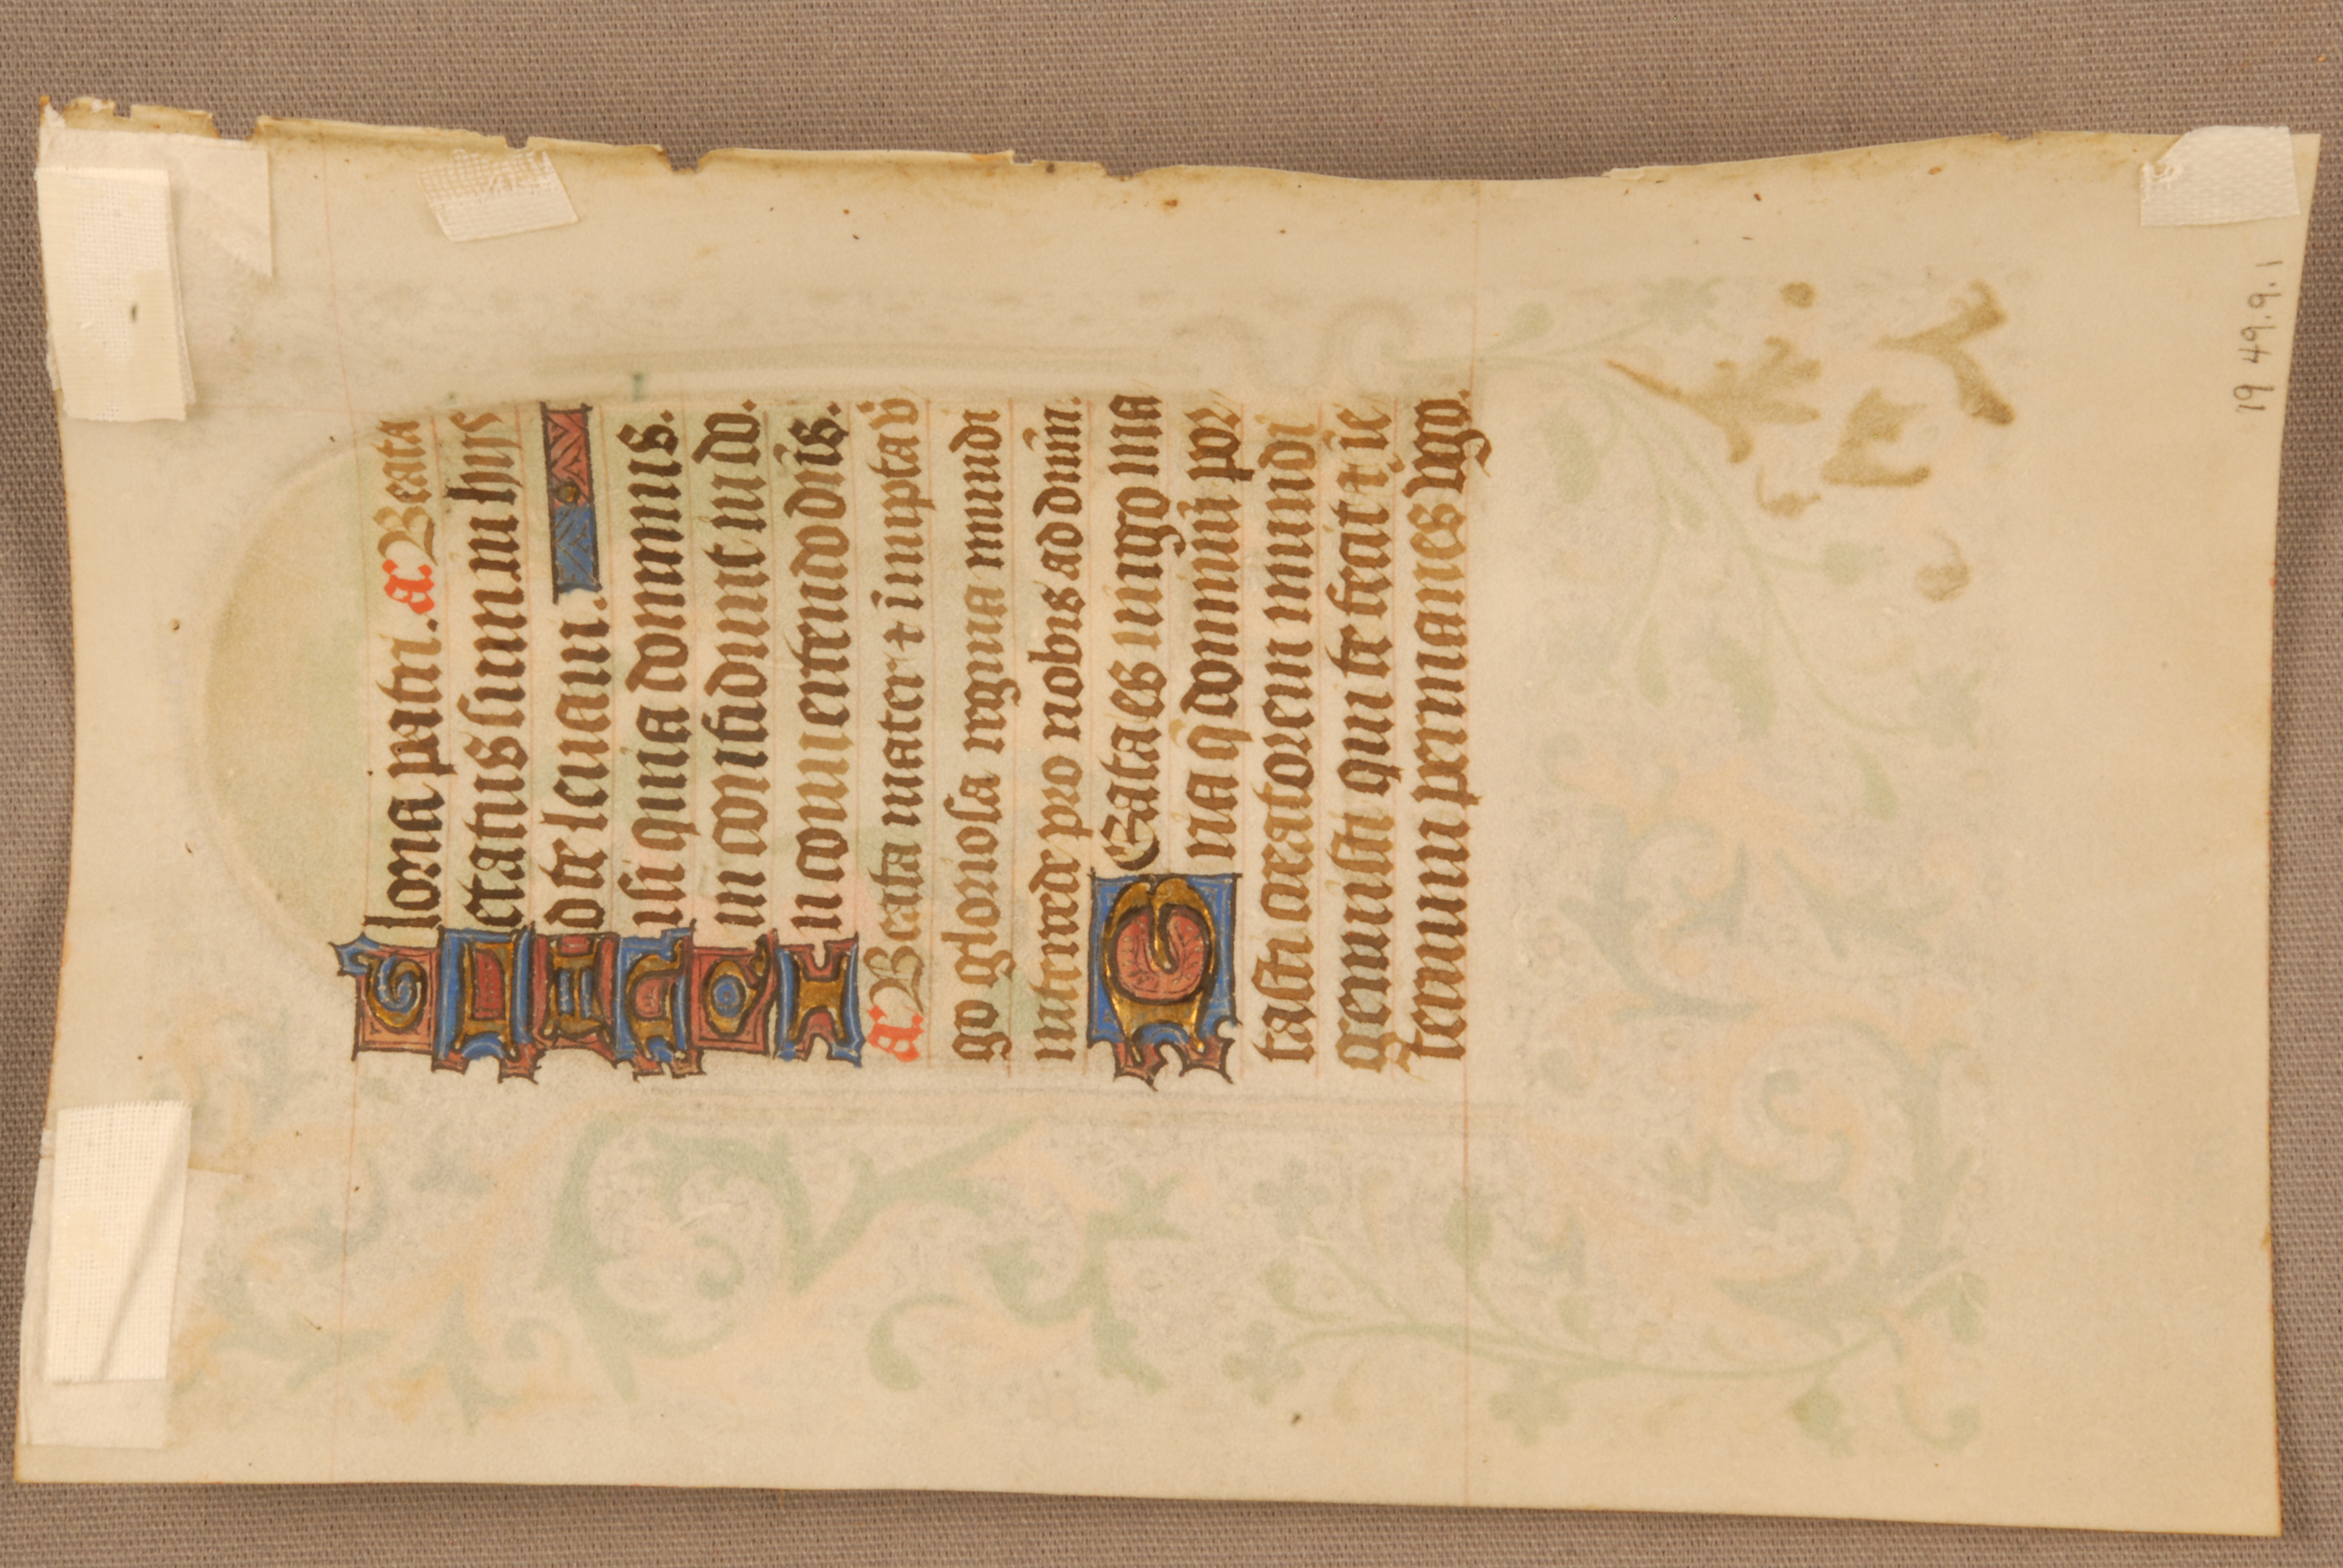 Gloria patri. a. Beata
Letatus sum in hijs
Ad te leuaui.
Nisi quia dominus.
Qui confidunt in do.
In conuertendo dñis.
a. Beata mater ⁊ īnupta v̄
go gloriosa regina mundi
intercede pro nobis ad dnm̄.
Beata es uirgo ma
ria q̄ dominū por
tasti creatorem mundi
genuisti qui te fecit ⁊ ī e
ternum permanes v̄go.
19 49.9.1